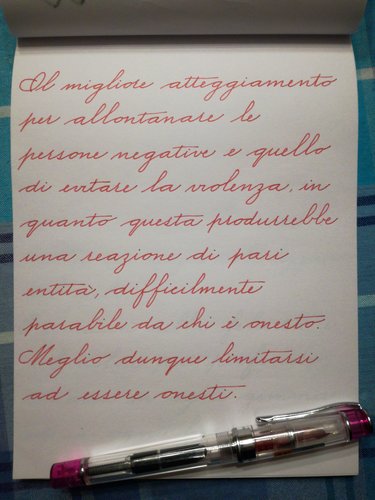 Il migliore atteggiamento
per allontanare le
persone negative e quello
di evitare la violenza, in
quanto questa produrrebbe
una reazione di pari
entità, difficilmente
parabile da chi è onesto.
Meglio dunque limitarsi
ad essere onesti.